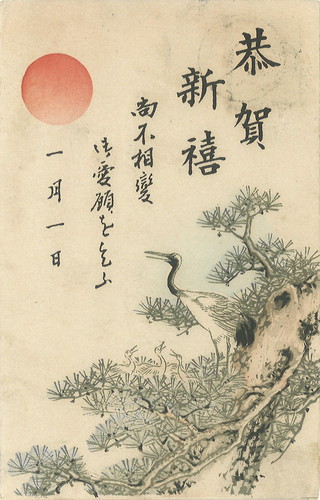 恭賀
新禧
尚不相變
御愛顧を乞ふ
一月一日